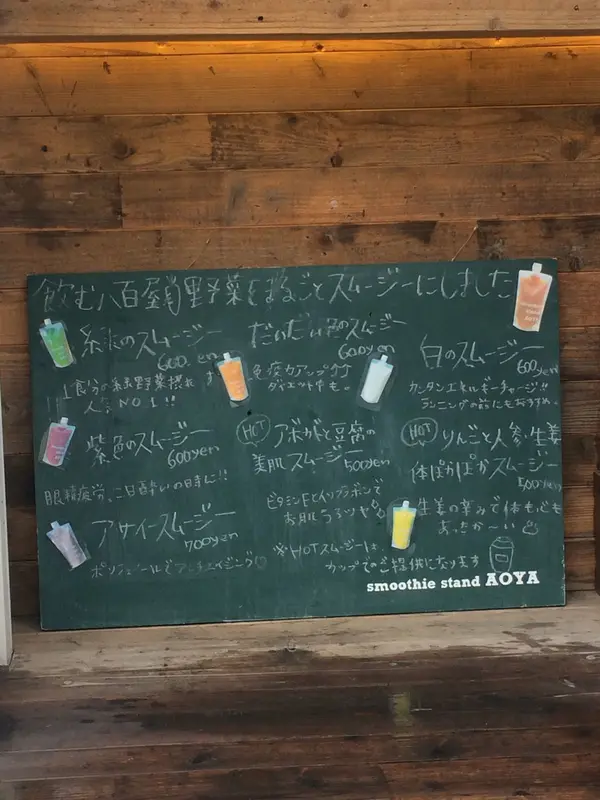 飲む八百屋 野菜をまるごとスムージーにしました
緑のスムージー
600yen
1食分の緑野菜摂れ
人気NO1!!
だいだい色のスムージー
600yen
免疫力アップ
ダイエットにも。
白のスムージー
600yen
カンタンエネルギーチャージ!!
ランニングの前にもおすすめ。
紫色のスムージー
600yen
眼精疲労、二日酔いの日に!!
HOT アボカドと豆腐の
美肌スムージー 500yen
ビタミンEとイソフラボンで
お肌うるツヤ
HOT りんごと人参・生姜
体ぽかぽかスムージー
500yen
生姜の辛みで体も心も
あったか〜い
アサイースムージー
700yen
ポリフェノールでアンチエイジング♡
※HOTスムージーは
カップでのご提供になります
smoothie stand AOYA